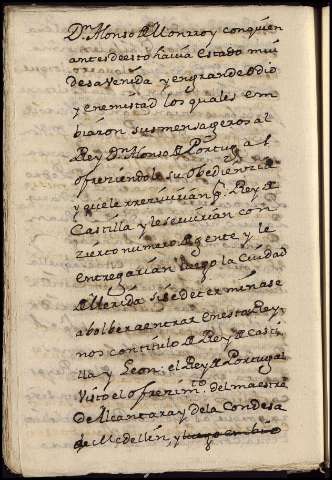 Dn. Alonso de Monrroy con quien
antes desto havia estado mui
desavenida y en grande odio
y enemistad los quales em
biaron sus mensageros al
Rey Dn. Alonso de Portugal
ofreziendole su obediencia
y que le rrezivirian pr. Rey de
Castilla y le servirian con
zierto numero de gente y le
entregarian luego la Ciudad
de Merida si se determinase
a bolber a entrar en estos Rey
nos con titulo de Rey de Casti
lla y Leon: el Rey de Portugal
visto el ofrezimto. del maestre
de Alcantara y de la Condesa
de Medellin, y luego embio